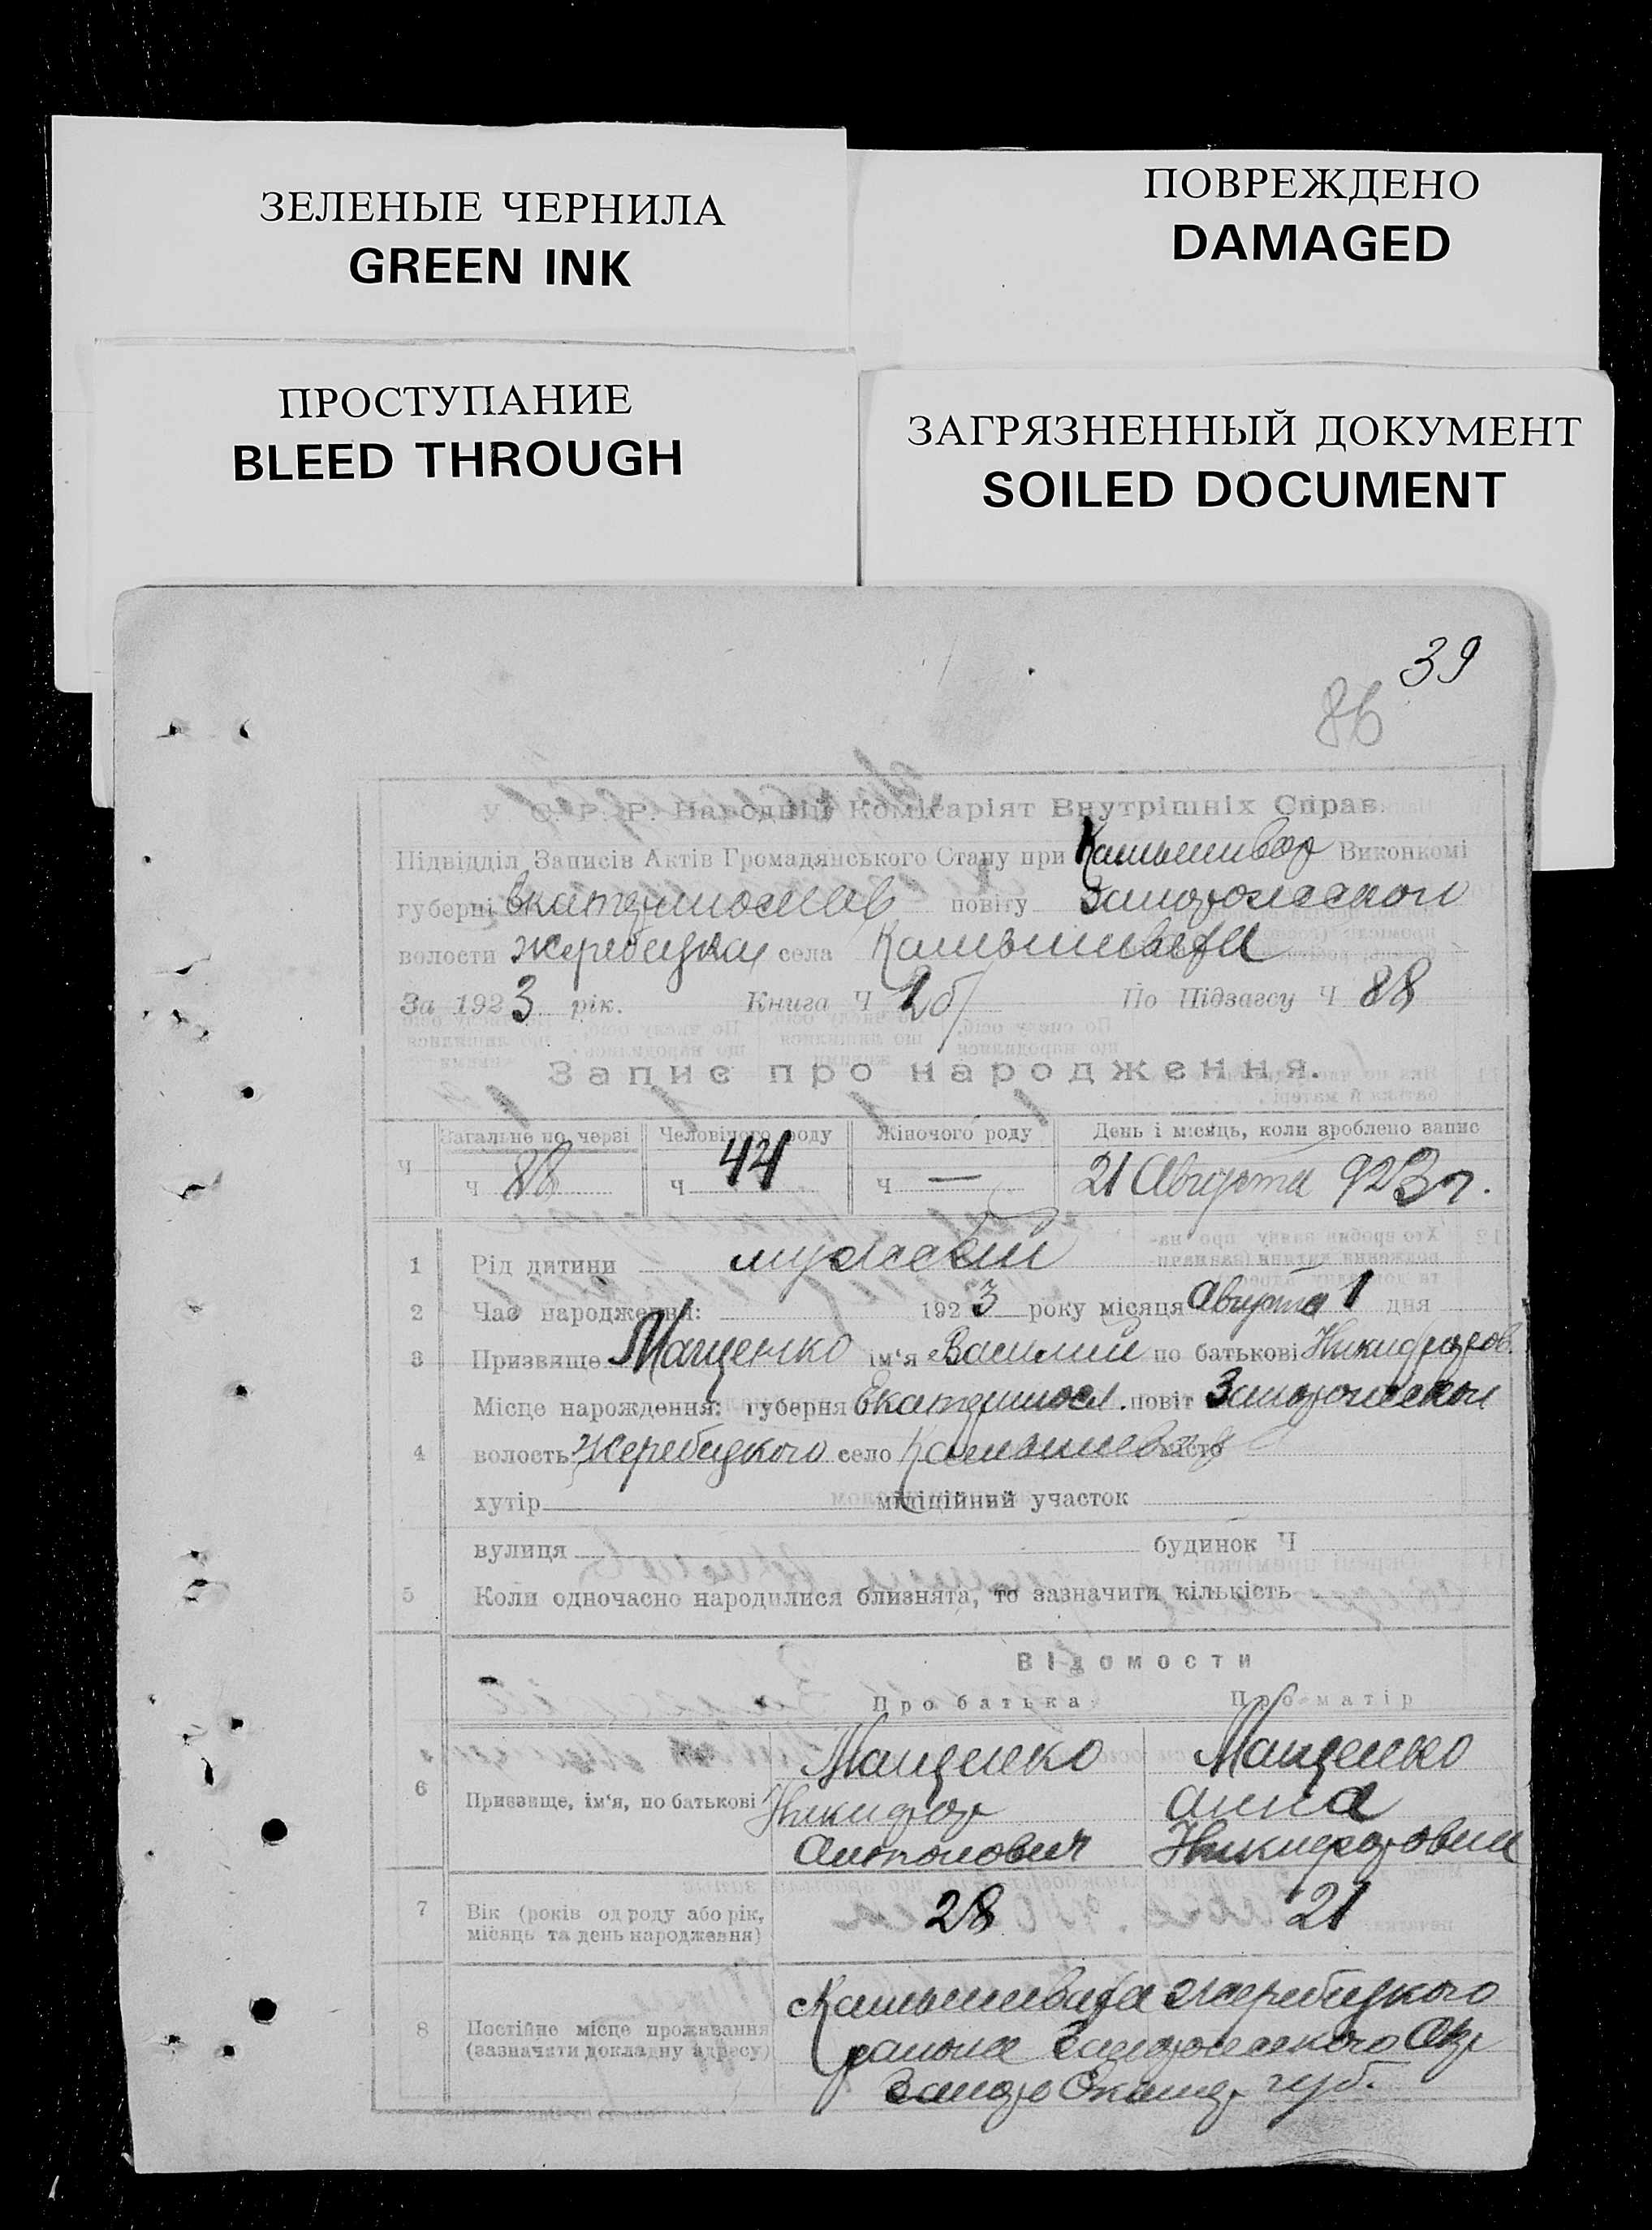 ЗЕЛЕНЫЕ ЧЕРНИЛА
GREEN INK
ПОВРЕЖДЕНО
DAMAGED
ПРОСТУПАНИЕ
BLEED THROUGH
ЗАГРЯЗНЕННЫЙ ДОКУМЕНТ
SOILED DOCUMENT
39
86
У. С. Р. Р. Народній Комісаріят Внутрішніх Справ.
Підвідділ Записів Актів Громадянського Стану при Камышевах Виконкомі
губерні Екатеринослав повіту Запорожской
волости Жеребецкая села Камышеваха
За 1923 рік. Книга Ч 2б/ По Підзагсу Ч 88
Запис про народження.
Загальне по черзі Человічого роду Жіночого роду День і місяць, коли зроблено запис
Ч ч 88 ч 44 ч — 21 Августа 923 г.
1 Рід дитини мужской
2 Час народження: 1923 року місяця Августа 1 дня
3 Призвище Мащенко ім'я Василий по батькові Никифоров.
Місце народження: губерня Екатериносл. повіт Запорожской
4 волость Жеребецкого село Камышевах місто
хутір міліційний участок
вулиця будинок Ч
5 Коли одночасно народилися близнята, то зазначити кількість
Відомости
Про батька Про матір
6 Призвище, ім'я, по батькові Мащенко Мащенко
Никифор Анна
Антонович Никифоровна
7 Вік (років од роду або рік, 28 21
місяць та день народження)
8 Постійне місце проживання Камышеваха Жеребецкого
(зазначити докладну адресу) района Запорожского Окр
губ.